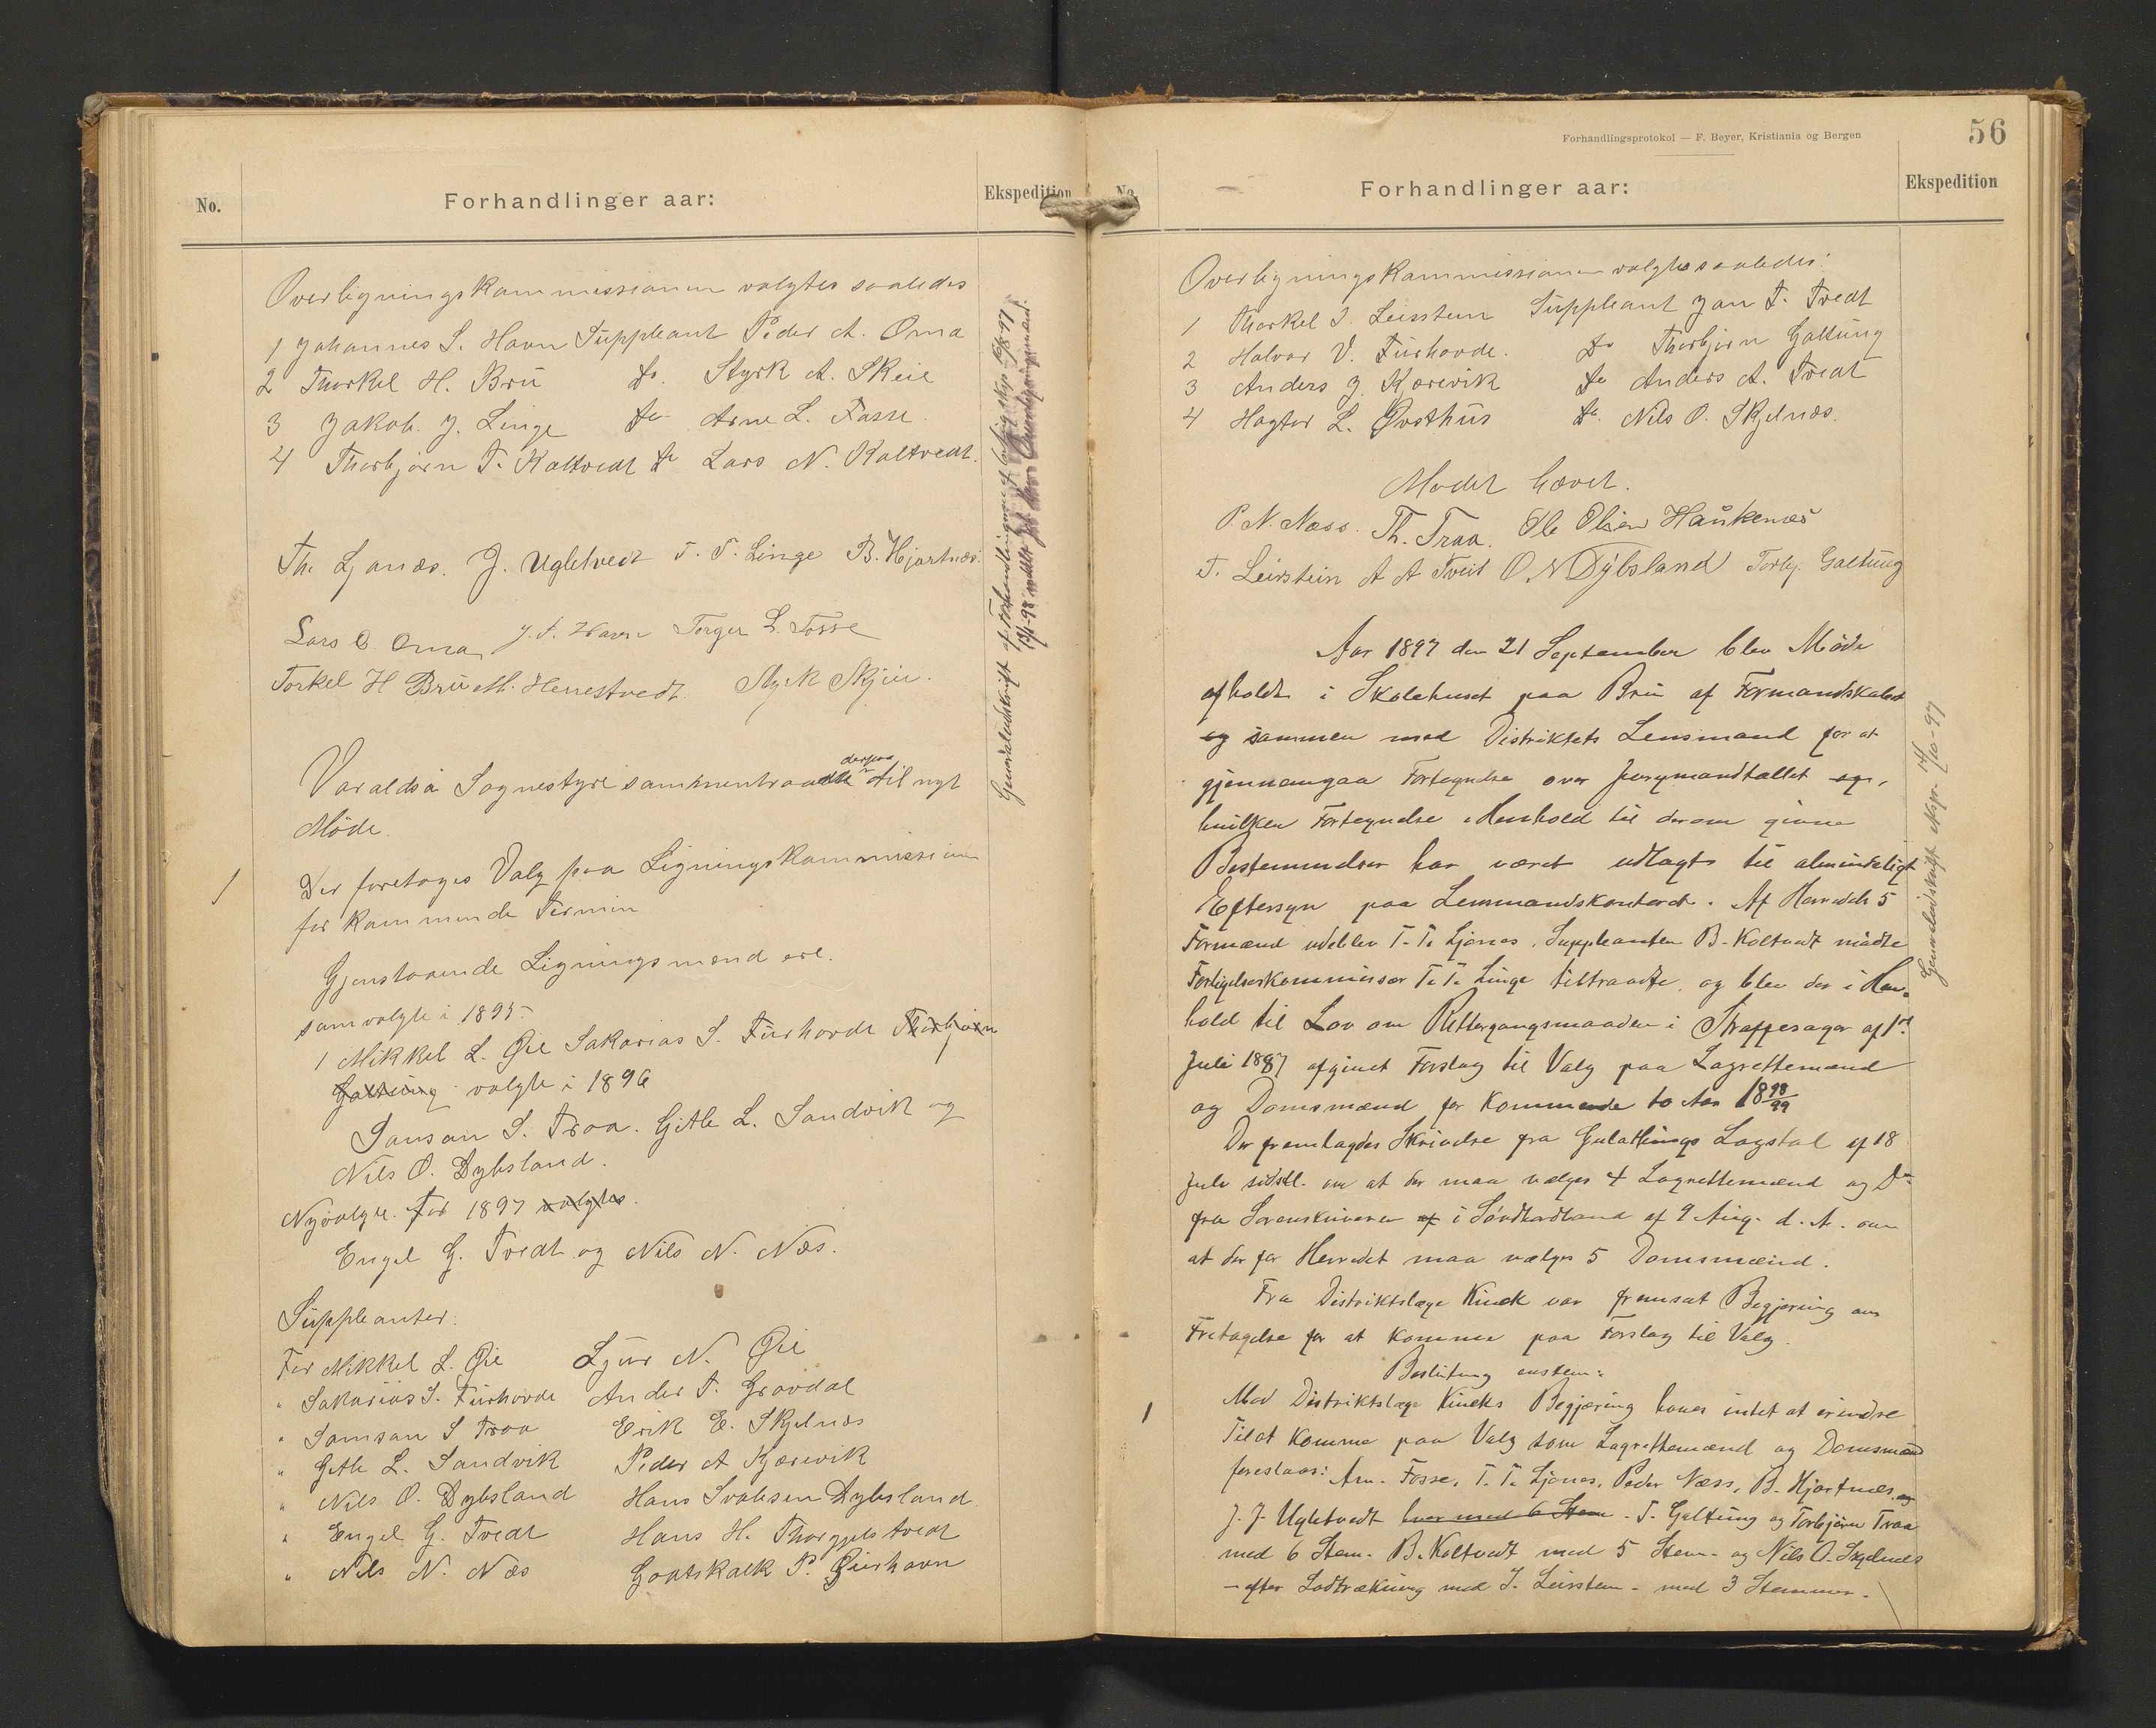 No.
Forhandlinger aar:
Ekspedition
Overligningskommissionen valgtes saaledes
1 Johannes S. Havn Suppleant Peder A. Oma
2 Thorkel H. Brü do. Styrk A. Skeie
3 Jakob. J. Linge do Arne L. Fosse
4 Thorbjørn T. Kaltvedt do Lars N. Kaltvedt.
Th. Ljanæs. J. Ugletvedt T. T. Linge B. Hjartnæs.
Lars O Oma J. S. Havn Torger L. Fosse
Torkel H Brü M. Herrestvedt. Styrk Skjeie.
Varaldsø Sognestyre sammentraadte derpaa til nyt
Møde.
1 Der foretoges Valg paa Ligningskommission
for kommende Termin
Gjenstaaende Ligningsmænd ere.
som valgte i 1895.
1 Mikkel L. Øie Sakarias S. Furhovde Thorbjørn
Galtung valgte i 1896
Samson S. Traa. Gitle L. Sandvik og
Nils O. Dybsland.
Nyvalgte. for 1897 valgtes.
Engel G. Tvedt og Nils N. Næs.
Suppleanter.
For Mikkel L. Øie Sjur N. Øie
" Sakarias S. Furhovde Anders T. Gravdal
" Samson S Traa Erik E. Skjelnæs
" Gitle L. Sandvik Peder A Kjærevik
" Nils O. Dybsland Hans Dybsland
" Engel G. Tvedt Hans H. Thorgjelstvedt
" Nils N. Næs Gaatskalk P. Øierhavn
Genpartudskrift af Forhandlingerne
Forhandlingsprotokol — F. Beyer, Kristiania og Bergen
56
No.
Forhandlinger aar:
Ekspedition
Overligningskommissionen valgtes saaledes:
1 Thorkel I. Leirstein Suppleant Jan T. Tvedt
2 Halvor V. Furhovde. do Thorbjørn Galtung
3 Anders J. Kjærevik do Anders A. Tvedt
4 Hagtor L. Øvsthus do. Nils O. Skjelnæs.
Mødet hævet.
P. N. Næss. Th. Traa. Ole Olsen Haukenæs
T. Leirstein A A Tveit O. N Dybsland Torbj. Galtung
Aar 1897 den 21 September blev Møde
afholdt i Skolehuset paa Brü af Formandskabet
og sammen med Distriktets Lensmand for at
gjennemgaa Fortegnelse over Jurymandtallet og,
hvilken Fortegnelse i Henhold til derom givne
Bestemmelser har været udlagt til almindeligt
Eftersyn paa Lensmandskontoret. Af Herredets 5
Formænd udeblev T. T. Ljones. Suppleanten B. Koltvedt mødte
Forligelseskommissær T. T. Linge tiltraadte, og blev der i Hen-
hold til Lov om Rettergangsmaaden i Straffesager af 1ste
Juli 1887 afgivet Forslag til Valg paa Lagrettemænd
og Domsmænd for kommende to Aar 1898/99
Der fremlagdes Skrivelse fra Gulathings Lagstol af 18
Juli sidstl. om at der maa vælges 4 Lagrettemænd og Do
fra Sorenskriveren af i Søndhordland af 9 Aug. d. A. om
at der for Herredet maa vælges 5 Domsmænd.
Fra Distriktslæge Kinck var fremsat Begjæring om
Fritagelse for at komme paa Forslag til Valg.
Beslutning enstem:
1 Mod Distriktslæge Kincks Begjæring haves intet at erindre
Til at komme paa Valg som Lagrettemænd og Domsmænd
foreslaaes: Arn. Fosse, T. T. Ljones, Peder Næss, B. Hjartnæs, og
J. J. Ugletvedt hver med 6 Stem. T. Galtung og Torbjørn Traa
med 6 Stem. B. Koltvedt med 5 Stem. og Nils O. Skjelnæs
— efter Lodtrækning med T. Leirstein — med 3 Stemmer.